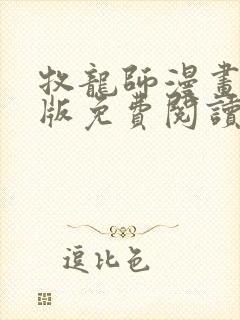 牧龍師漫畫
版免費閱讀
逗比色